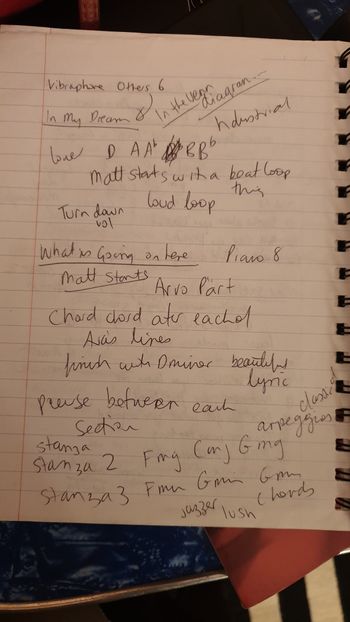 Vibraphone Others 6
In My Dream & In the Venn diagram...
Industrial
Love D A Ab B Bb
Matt starts with a beat loop thing
Turn down vol loud loop
What is Going on here Piano 8
Matt Starts
Arvo Part
Chord chord after each of
Ava's lines
finish with D minor beautiful lyric
pause between each
section classical arpeggios
stanza
stanza 2 Fmg Cmg Gmg
stanza 3 Fmin Gmin Gmin chords
jazzer lush